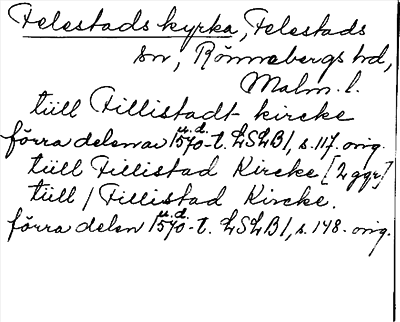 Felestads kyrka, Felestads
sn, Rönnebergs hd,
Malm. l.
tüll Fillistadt kircke
förra delen av 1570-t. LSLB 1, s. 117. orig.
u.d.
tüll Fillistad Kircke [2 ggr]
tüll / Fillistad Kircke.
u.d.
förra delen 1570-t. LSLB 1, s. 148. orig.